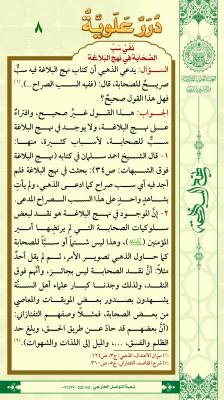 دُرَرٌ عَلَوِيَّةٌ
٨
نفيُ سبِّ
الصّحابة في نهج البلاغة
السؤال: يدعي الذهبي أن كتاب نهج البلاغة فيه سبٌّ
صريحٌ للصحابة، قال: (ففيه السب الصراح..).(١)
فهل هذا القول صحيحٌ؟
الجواب: هذا القول غير صحيح، وافتراءٌ
على نهج البلاغة، ولا يوجد في نهج البلاغة
سبٌّ للصحابة، لأسبابٍ كثيرة، منها:
١- قال الشيخ أحمد سلمان في كتابه (نهج البلاغة
فوق الشبهات: ص٣٤): بحثت في نهج البلاغة فلم
أجد فيه أي سب صراح كما ادعى الذهبي، ولم يأتِ
بشاهدٍ واحدٍ على هذا السب الصراح المدعى.
٢- إنَّ الموجود في نهج البلاغة هو نقد لبعض
سلوكيات الصحابة التي لم يرتضها أمير
المؤمنين، وهذا ليس شتماً أو سبّاً للصحابة
كما حاول الذهبي تصوير الأمر، ثم لم يقل أحدٌ
مثلاً: أنَّ نقد الصحابة ليس بجائز، وأنَّهم فوق
النقد، ولذلك وجدنا كبار علماء أهل السنّة
يشهدون بصدور بعض الموبقات والمعاصي
من بعض الصحابة، فمثلاً وصفهم التفتازاني:
(أنَّ بعضهم قد حادَ عن طريق الحق، وبلغ حد
الظلم والفسق، ... والميل إلى اللذات والشهوات).(٢)
(١) ميزان الاعتدال، الذهبي: ج٣، ص١٢٤.
(٢) شرح المقاصد، التفتازاني: ج٥، ص٣١٠.